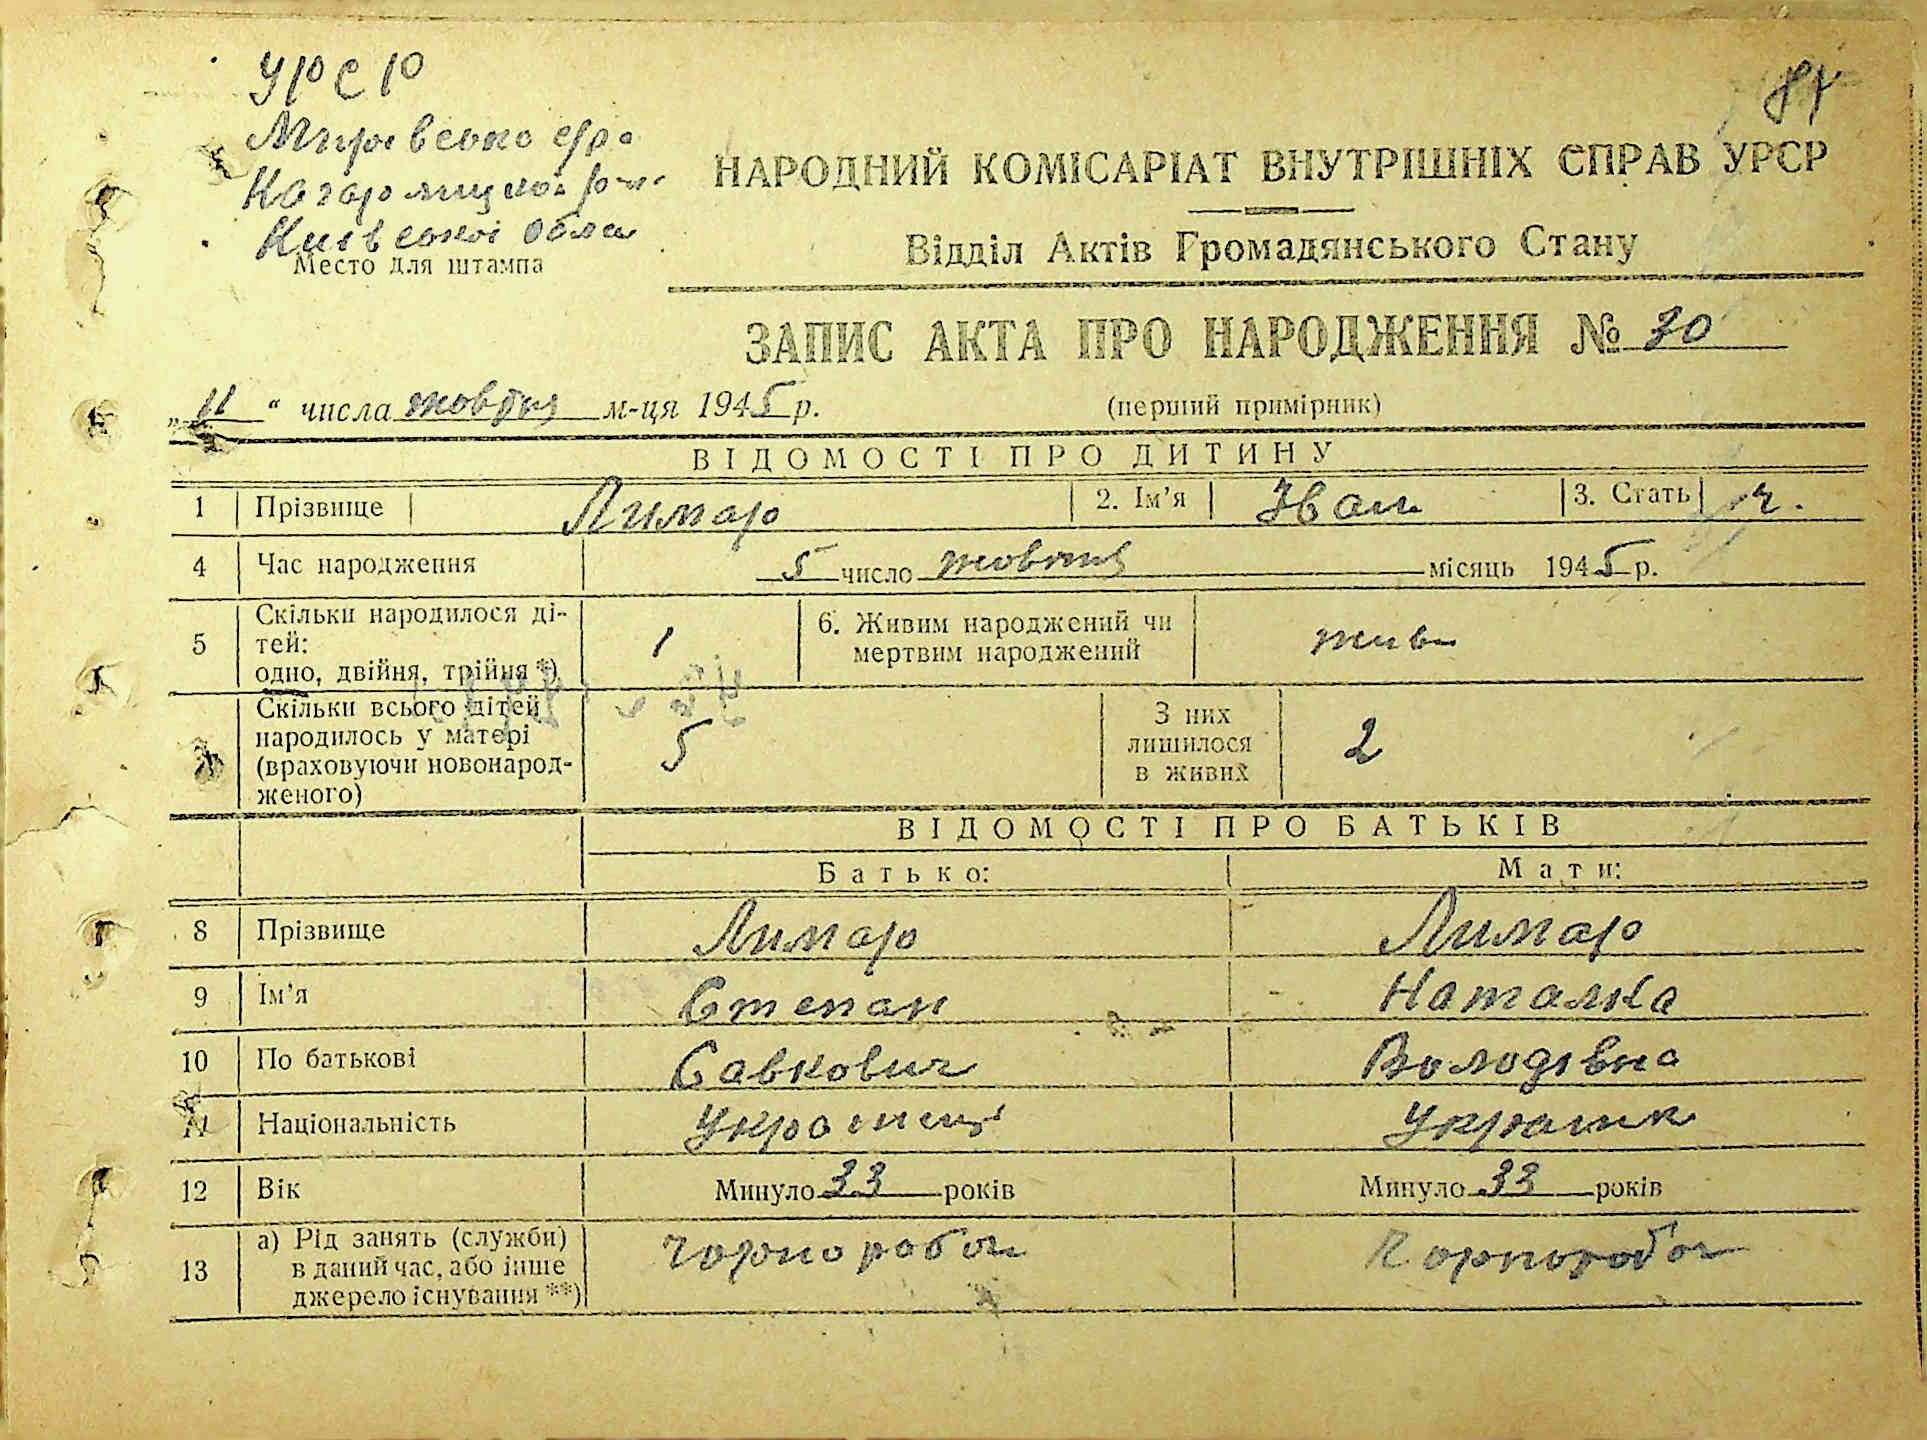 УРСР
87
Мирівсько с/ра
Кагарлицкої р-н
Київської обла
Место для штампа
НАРОДНИЙ КОМІСАРІАТ ВНУТРІШНІХ СПРАВ УРСР
Відділ Актів Громадянського Стану
ЗАПИС АКТА ПРО НАРОДЖЕННЯ № 30
„ 11 “ числа жовтня м-ця 1945 р. (перший примірник)
ВІДОМОСТІ ПРО ДИТИНУ
1 Прізвище Лимар 2. Ім’я Іван 3. Стать ч.
4 Час народження 5 число жовтня місяць 1945 р.
5 Скільки народилося ді-
тей:
одно, двійня, трійня *) 1 6. Живим народжений чи
мертвим народжений живи
Скільки всього дітей
народилось у матері
(враховуючи новонарод-
женого) 5 З них
лишилося
в живих 2
ВІДОМОСТІ ПРО БАТЬКІВ
Батько: Мати:
8 Прізвище Лимар Лимар
9 Ім’я Степан Наталка
10 По батькові Савкович Володівна
11 Національність Українці Українк
12 Вік Минуло 33 років Минуло 33 років
13 а) Рід занять (служби)
в даний час, або інше
джерело існування **) чорнороботи Чорноробоч